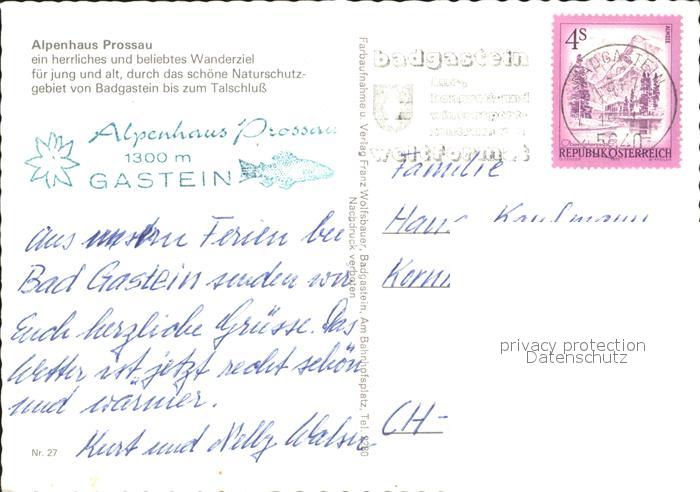 Alpenhaus Prossau
ein herrliches und beliebtes Wanderziel
für jung und alt, durch das schöne Naturschutz-
gebiet von Badgastein bis zum Talschluß
Alpenhaus Prossau
1300 m
GASTEIN
aus unsern Ferien bei
Bad Gastein senden wir
Euch herzliche Grüsse. Das
Wetter ist jetzt recht schön
und warmer.
Kurt und Nelly
Nr. 27
Farbaufnahme u. Verlag Franz Wolfsbauer, Badgastein, Am Bahnhofsplatz, Tel.
Nachdruck verboten
badgastein
kur-,
kongreß- und
wintersport-
weltformat
4 S
BADGASTEIN
5640
REPUBLIK ÖSTERREICH
Familie
Hans Kaufmann
CH-
privacy protection
Datenschutz